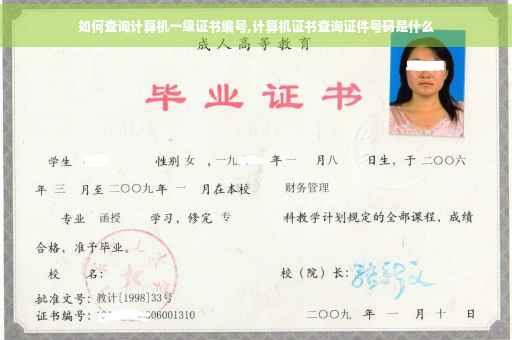 如何查询计算机一级证书编号,计算机证书查询证件号码是什么
成人高等教育
毕业证书
学生 性别 女 ，一九 年 一 月八 日生，于 二〇〇六
年 三 月至 二〇〇九年 一 月在本校 财务管理
专业 函授 学习，修完 专 科教学计划规定的全部课程，成绩
合格，准予毕业。
校 名： 校（院）长：
批准文号：教计[1998]33号
证书编号： 006001310 二〇〇九 年 一 月 十 日